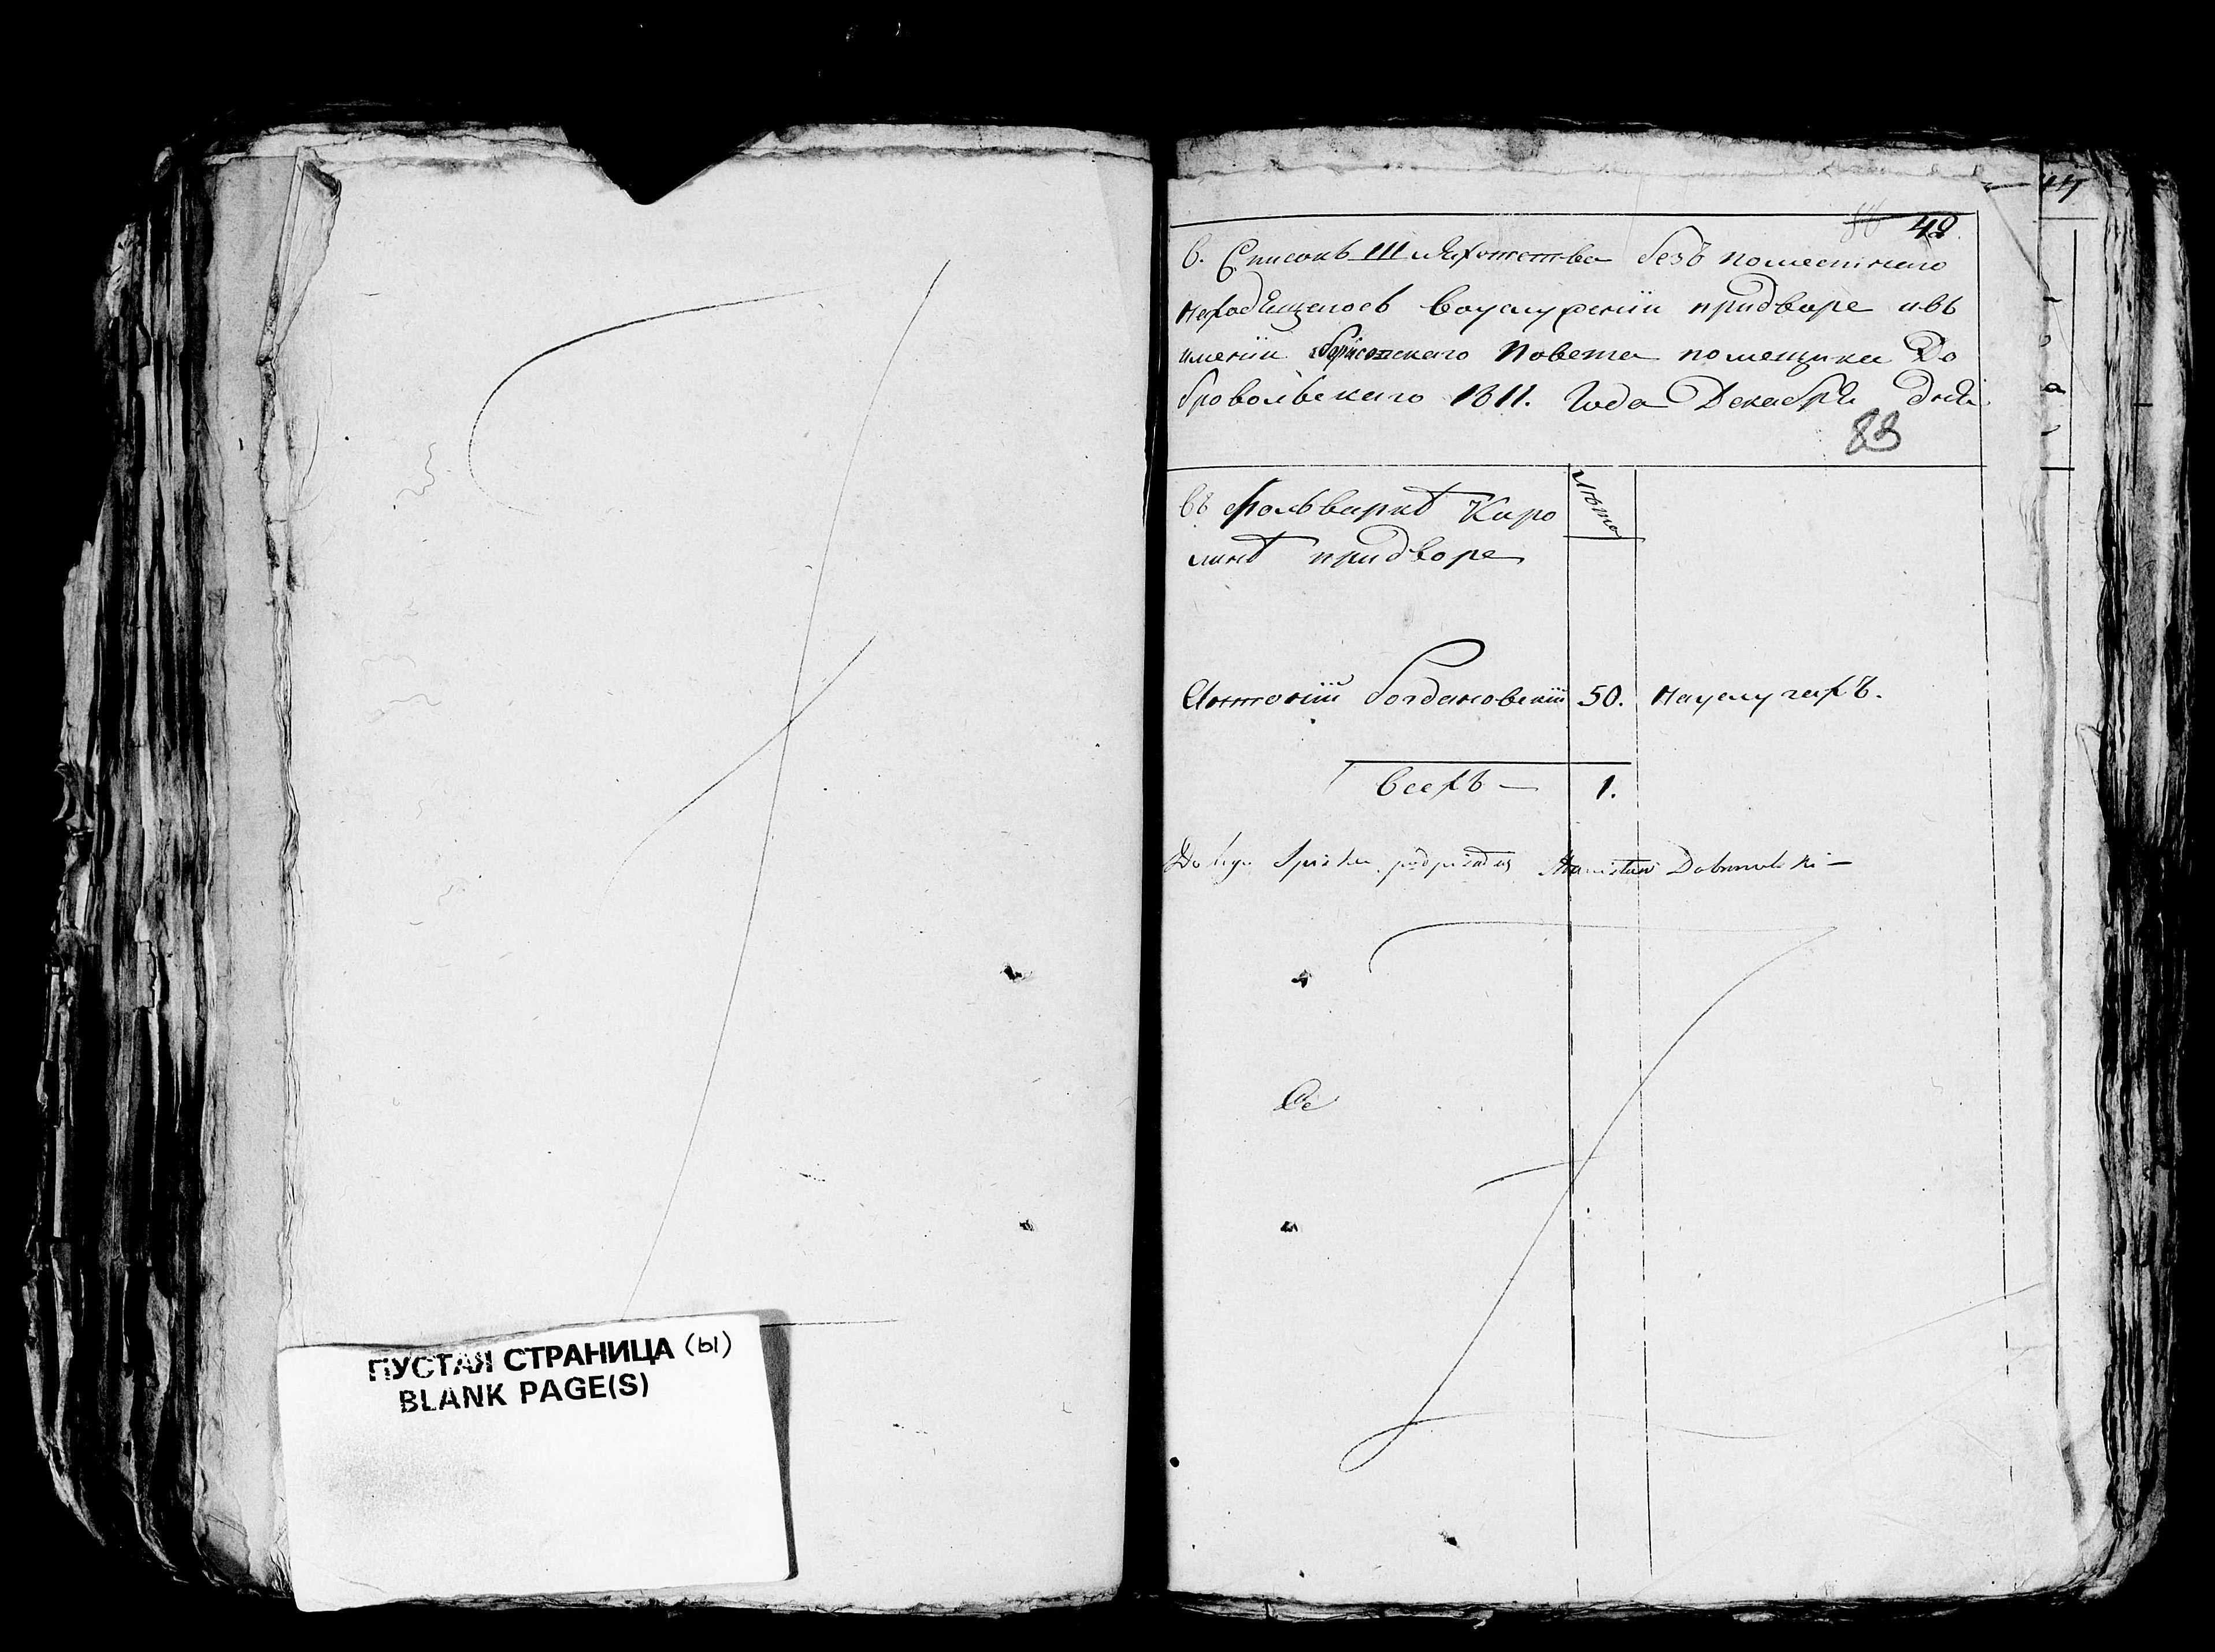 ПУСТАЯ СТРАНИЦА (ы)
BLANK PAGE(S)
42
В. Списокъ Шляхотства безъ поместнаго
находящегось воуслужении придворе ивъ
имении Борисовского Повета помещика До
бровольского 1811. Года Декабря дня
83
въ фольварке Каро Лета
лине придворе
Антоний Богдановский 50. Науслугахъ.
всехъ — 1.
Do tego Spisku podpisuję Stanisław Dobrowolski —